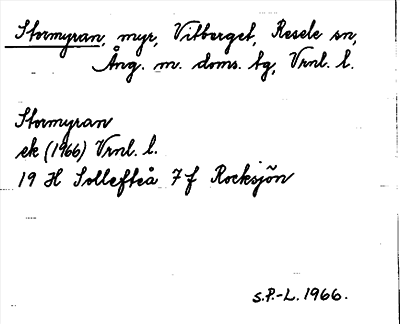 Stormyran, myr, Vitberget, Resele sn,
Ång. m. doms. tg, Vrnl. l.
Stormyran
ek (1966) Vrnl. l.
19 H Sollefteå 7 f Rocksjön
S.P.-L. 1966.